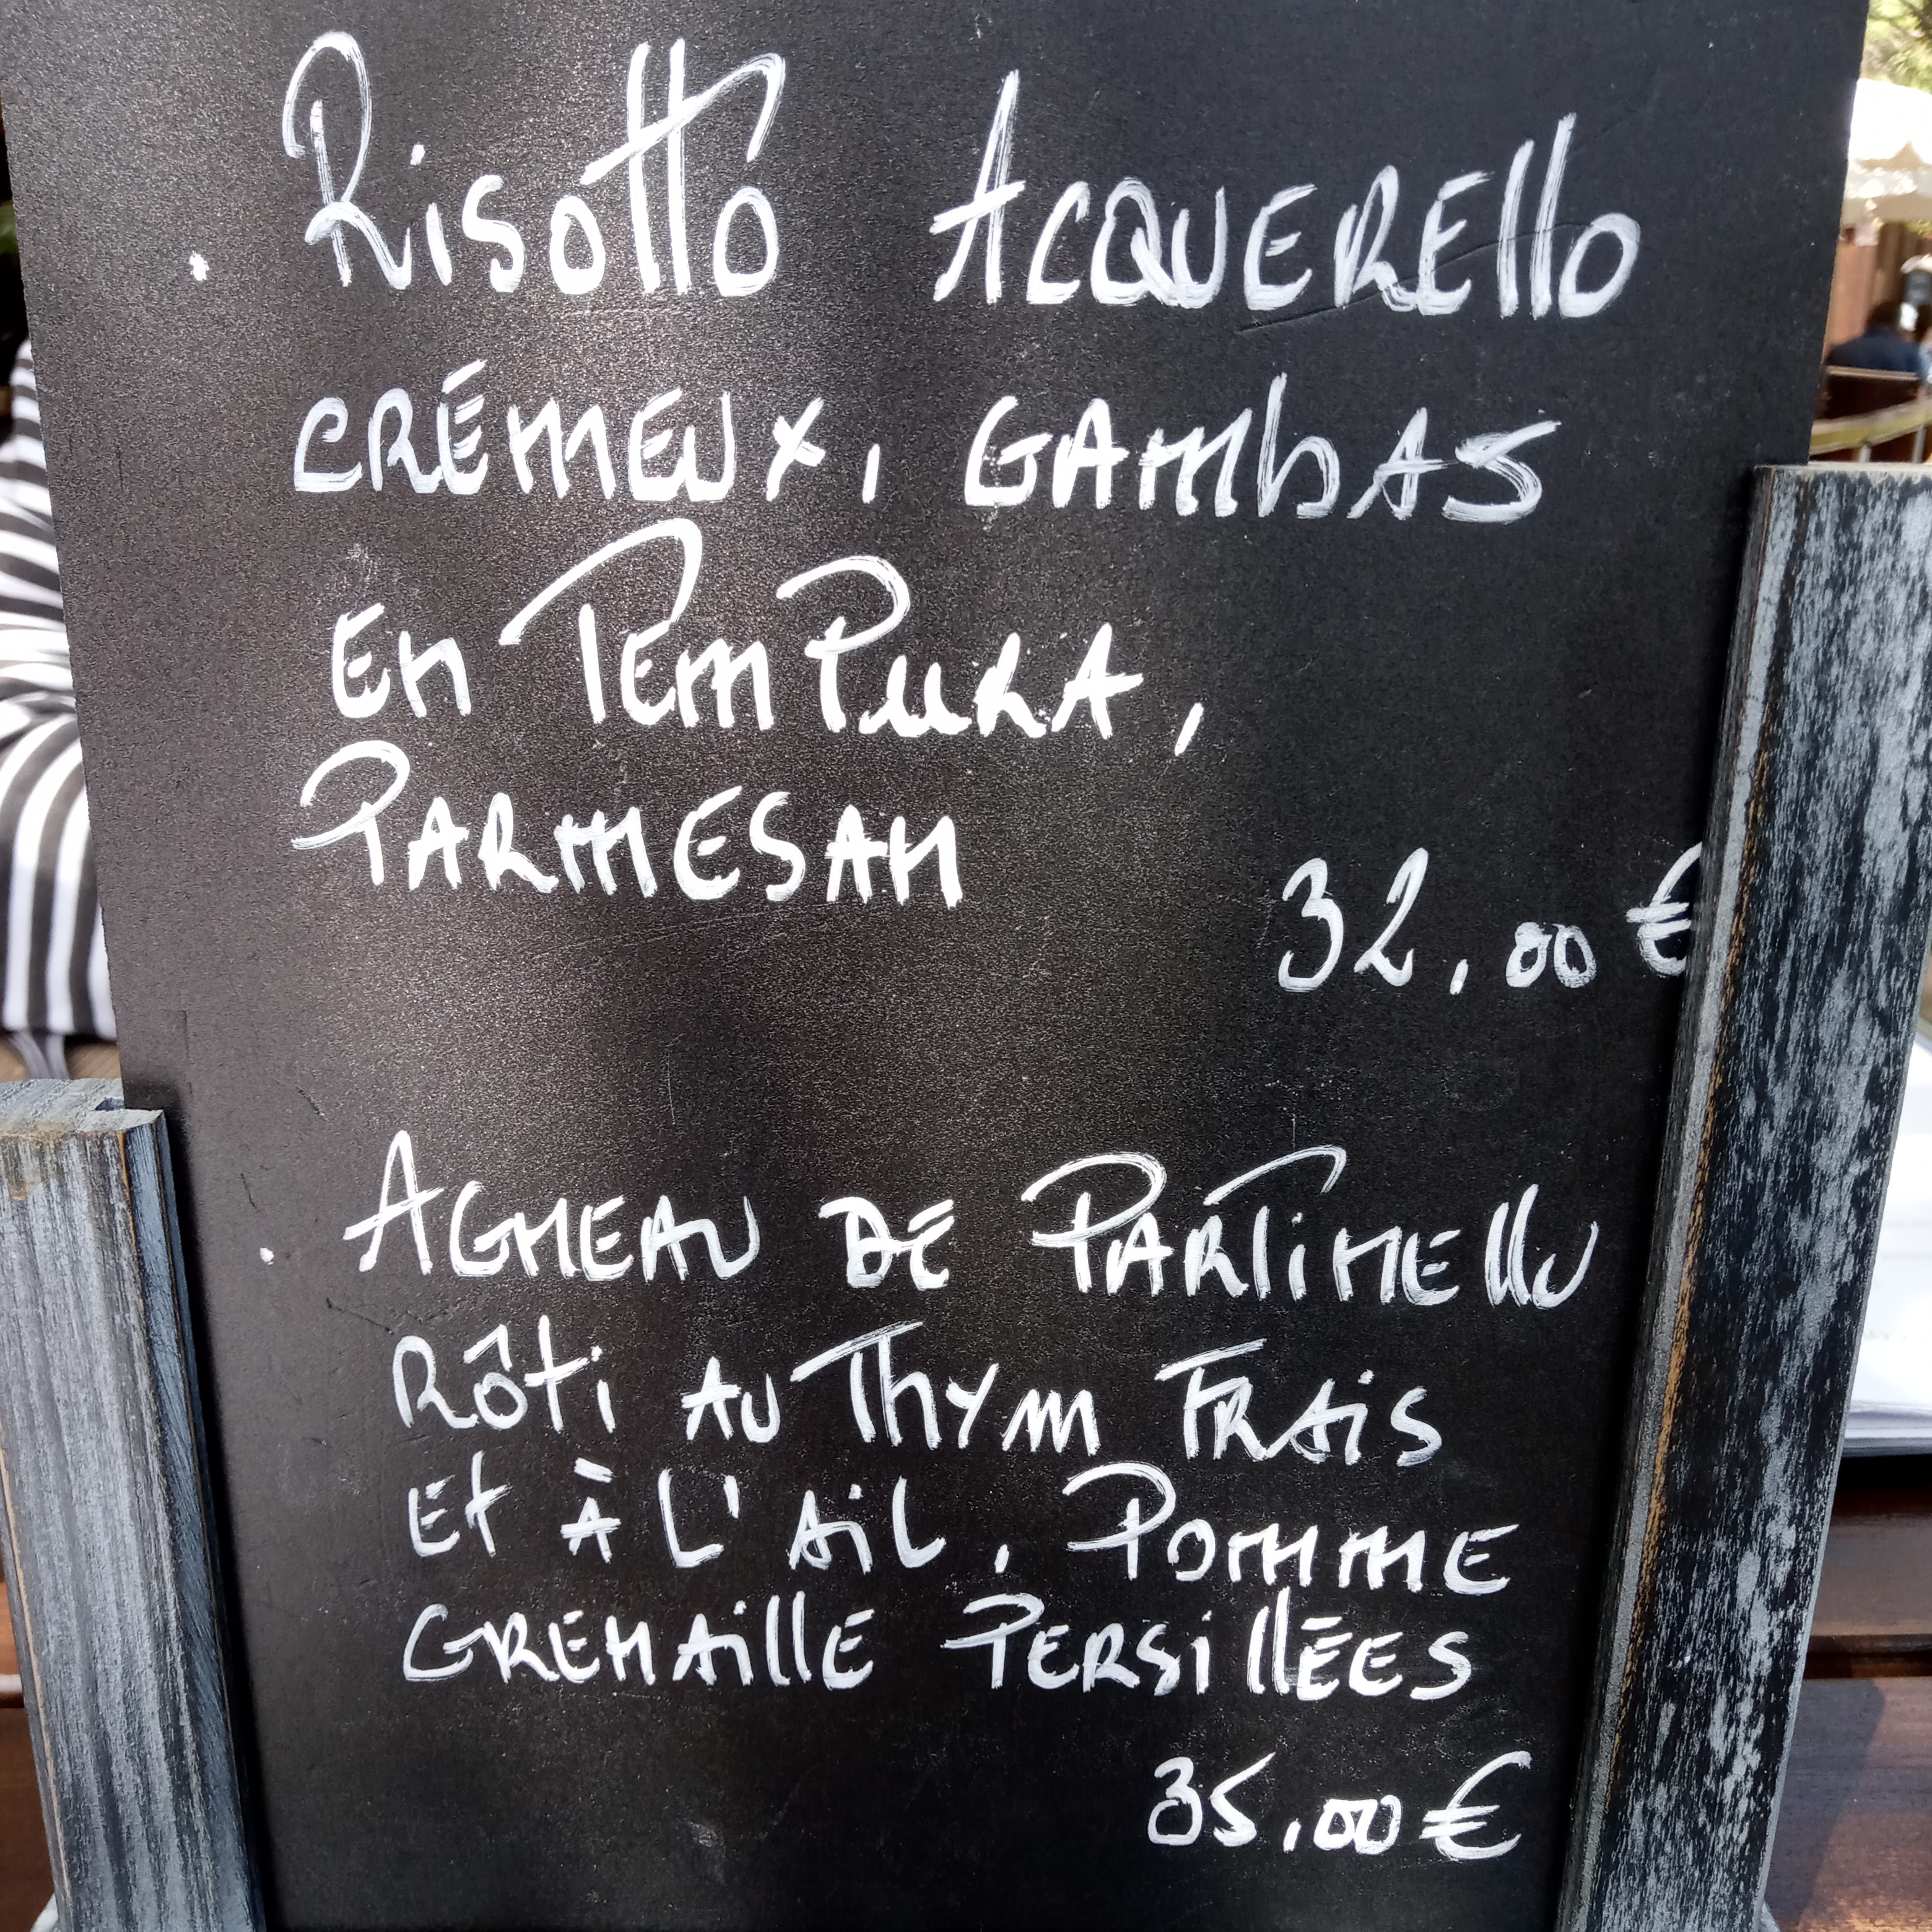 . Risotto Acquerello
crémeux, gambas
en Tempura,
Parmesan
32,00 €
. Agneau de Partinellu
rôti au Thym Frais
et à l'ail, Pomme
Grenaille Persillées
35,00 €